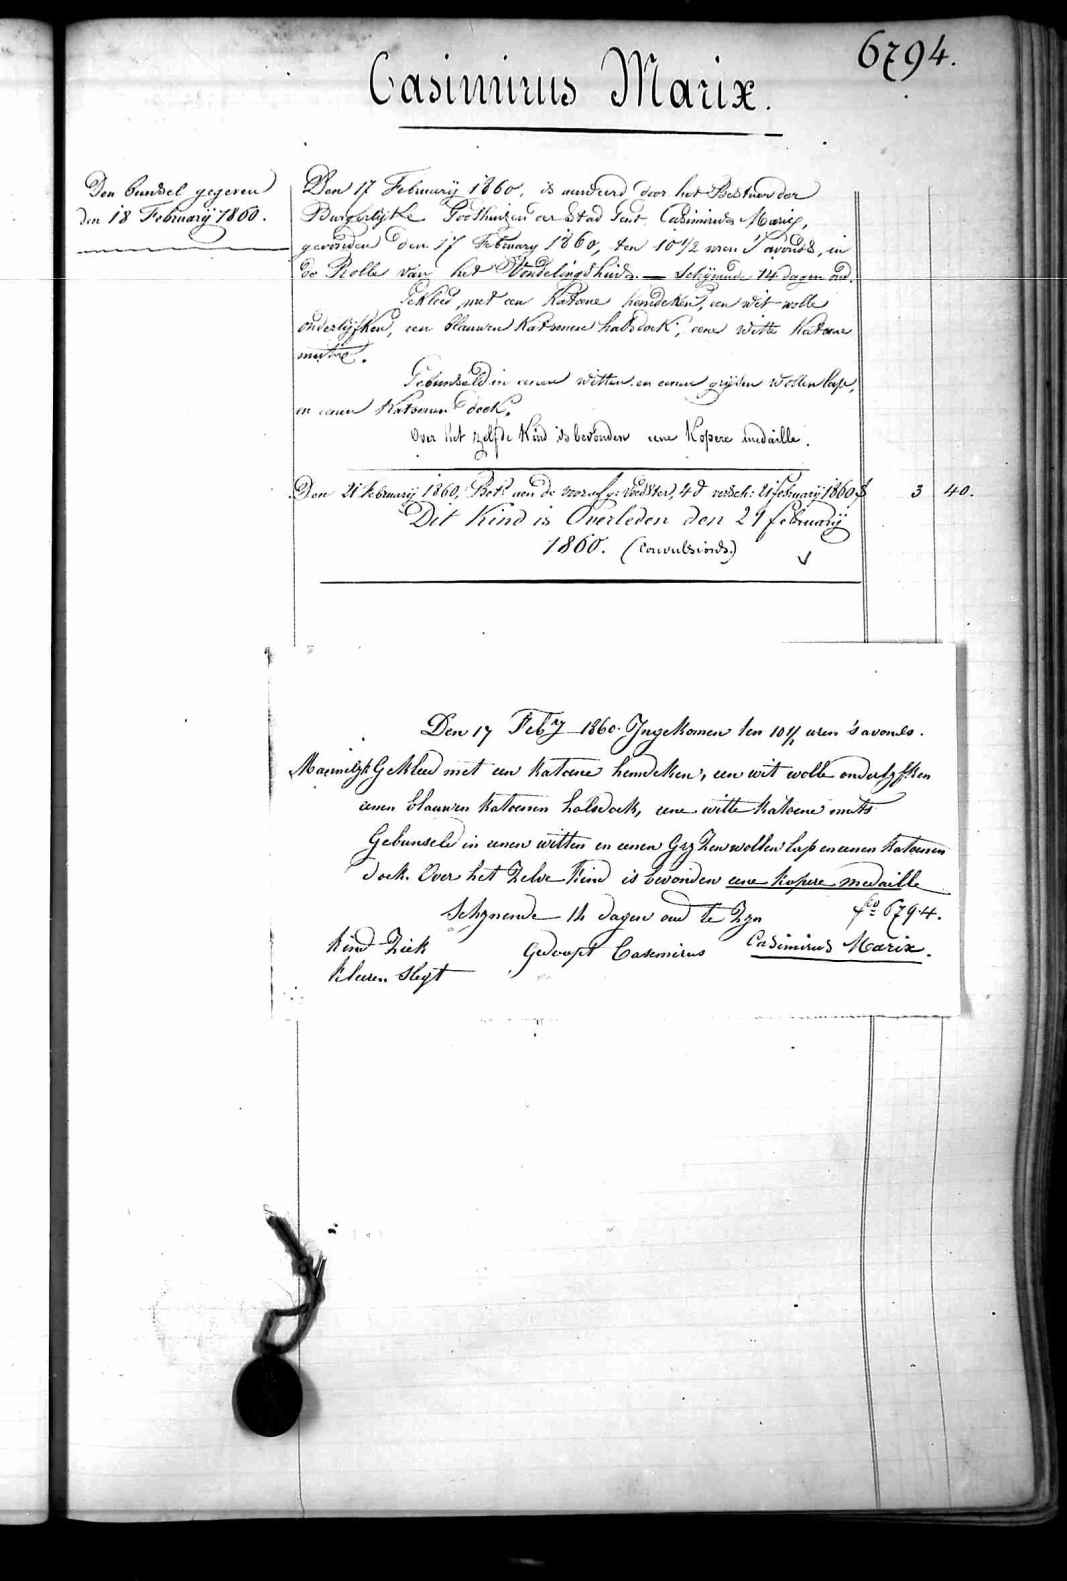 6794.
Casimirus Marix.
Den bunsel gegeven
den 18 February 1860.
Den 17 February 1860, is aenveerd door het Bestuer der
Burgerlyke Godshuizen der Stad Gent Casimirus Marix,
gevonden den 17 February 1860, ten 10 1/2 uren 's avonds, in
de Rolle van het Vondelingshuis. — Schynende 14 dagen oud.
Gekleed met een Katoene hemdeken, een wit wolle
onderlyfken, een blauwen Katoenen halsdoek, eene witte Katoene
mutse.
Gebunseld in eenen witten en eenen gryzen wollen lap,
en eenen Katoenen doek.
Over het zelfde Kind is bevonden eene Kopere medaille.
Den 21 February 1860, Bet. aen de voedster, 4 d versch: 21 February 1860 f 3 40.
Dit Kind is Overleden den 29 february
1860. (convulsions.)
Den 17 Feb.ry 1860. Ingekomen ten 10 1/2 uren 's avonds.
Mannelyk Gekleed met een katoene hemdeken, een wit wolle onderlyfken
eenen blauwen katoenen halsdoek, eene witte katoene muts
Gebunseld in eenen witten en eenen Gryzen wollen lap en eenen katoenen
doek. Over het Zelve Kind is bevonden eene kopere medaille
Schynende 14 dagen oud te Zyn fo 6794.
Kind Ziek Gedoopt Casemirus Casimirus Marix.
Kleeren Slegt